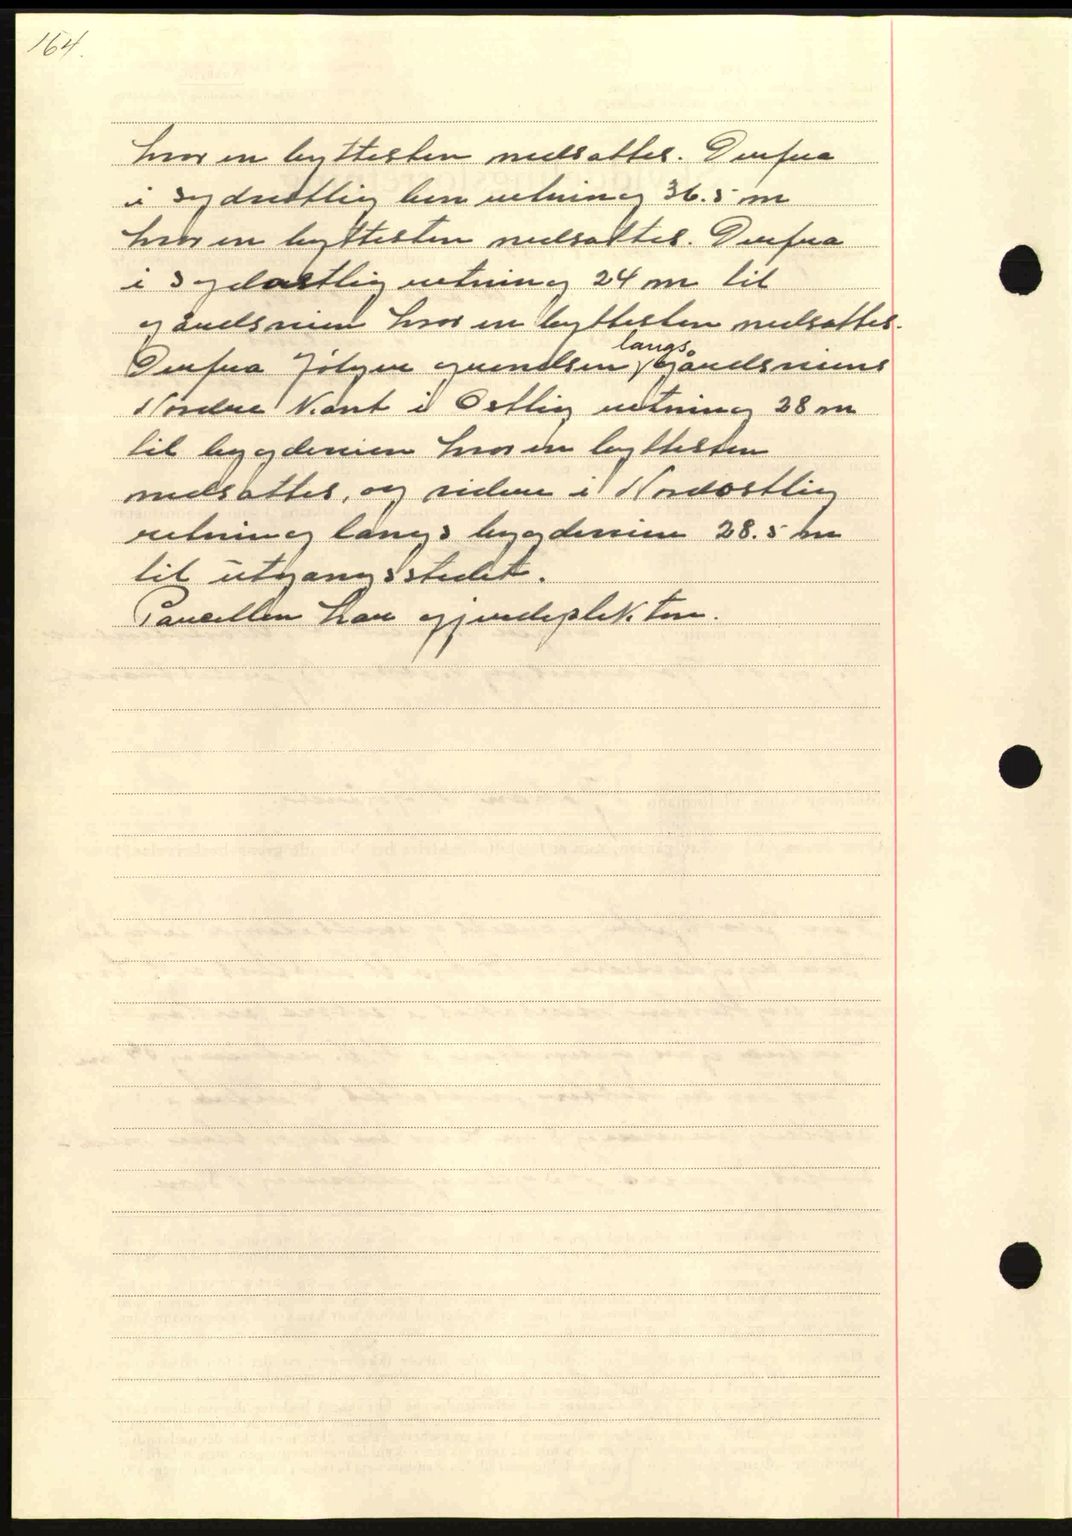 164.
hvor en byttesten nedsattes. Derfra
i sydvestlig hen retning 36.5 m
hvor en byttesten nedsattes. Derfra
i sydostlig retning 24 m til
gårdsveien hvor en byttesten nedsattes.
Derfra følger grendsen langs gårdsveiens
Nordre Kant i Ostlig retning 28 m
til bygdeveien hvor en byttesten
nedsattes, og videre i Nordostlig
retning langs bygdeveien 28.5 m
til utgangsstedet.
Parcellen har gjerdeplikten.